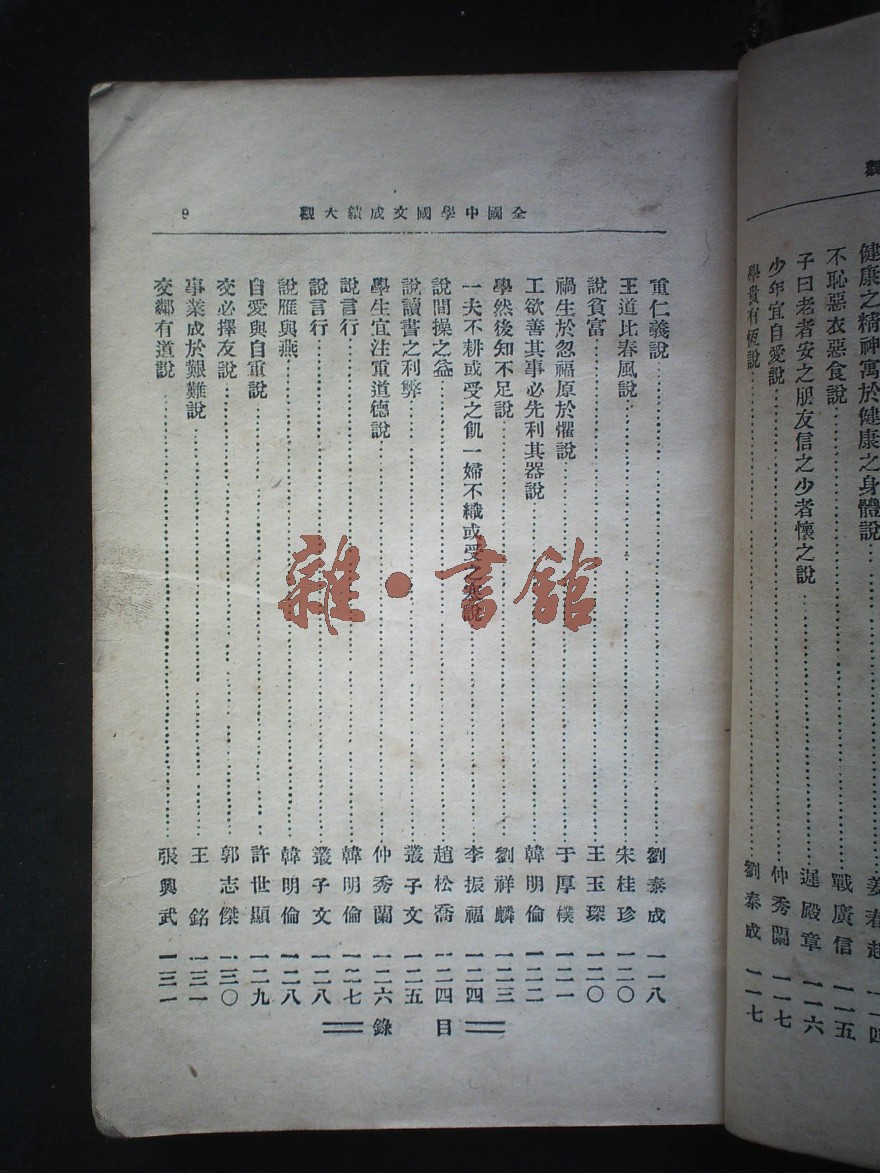 健康之精神寓於健康之身體說
不恥惡衣惡食說……戰廣信 一一五
子曰老者安之朋友信之少者懷之說……遲殿章 一一六
少年宜自愛說……仲秀蘭 一一七
學貴有恆說……劉泰成 一一七
全國中學國文成績大觀 9
重仁義說……劉泰成 一一八
王道比春風說……宋桂珍 一二〇
說貧富……王玉琛 一二〇
禍生於忽福原於懼說……于厚樸 一二一
工欲善其事必先利其器說……韓明倫 一二二
學然後知不足說……劉祥麟 一二三
一夫不耕或受之飢一婦不織或受之寒說……李振福 一二四
說間操之益……趙松喬 一二四
說讀書之利弊……叢子文 一二五
學生宜注重道德說……仲秀蘭 一二六
說言行……韓明倫 一二七
說言行……叢子文 一二八
說雁與燕……韓明倫 一二八
自愛與自重說……許世顯 一二九
交必擇友說……郭志傑 一三〇
事業成於艱難說……王銘 一三一
交鄰有道說……張興武 一三一
目錄
雜·書館